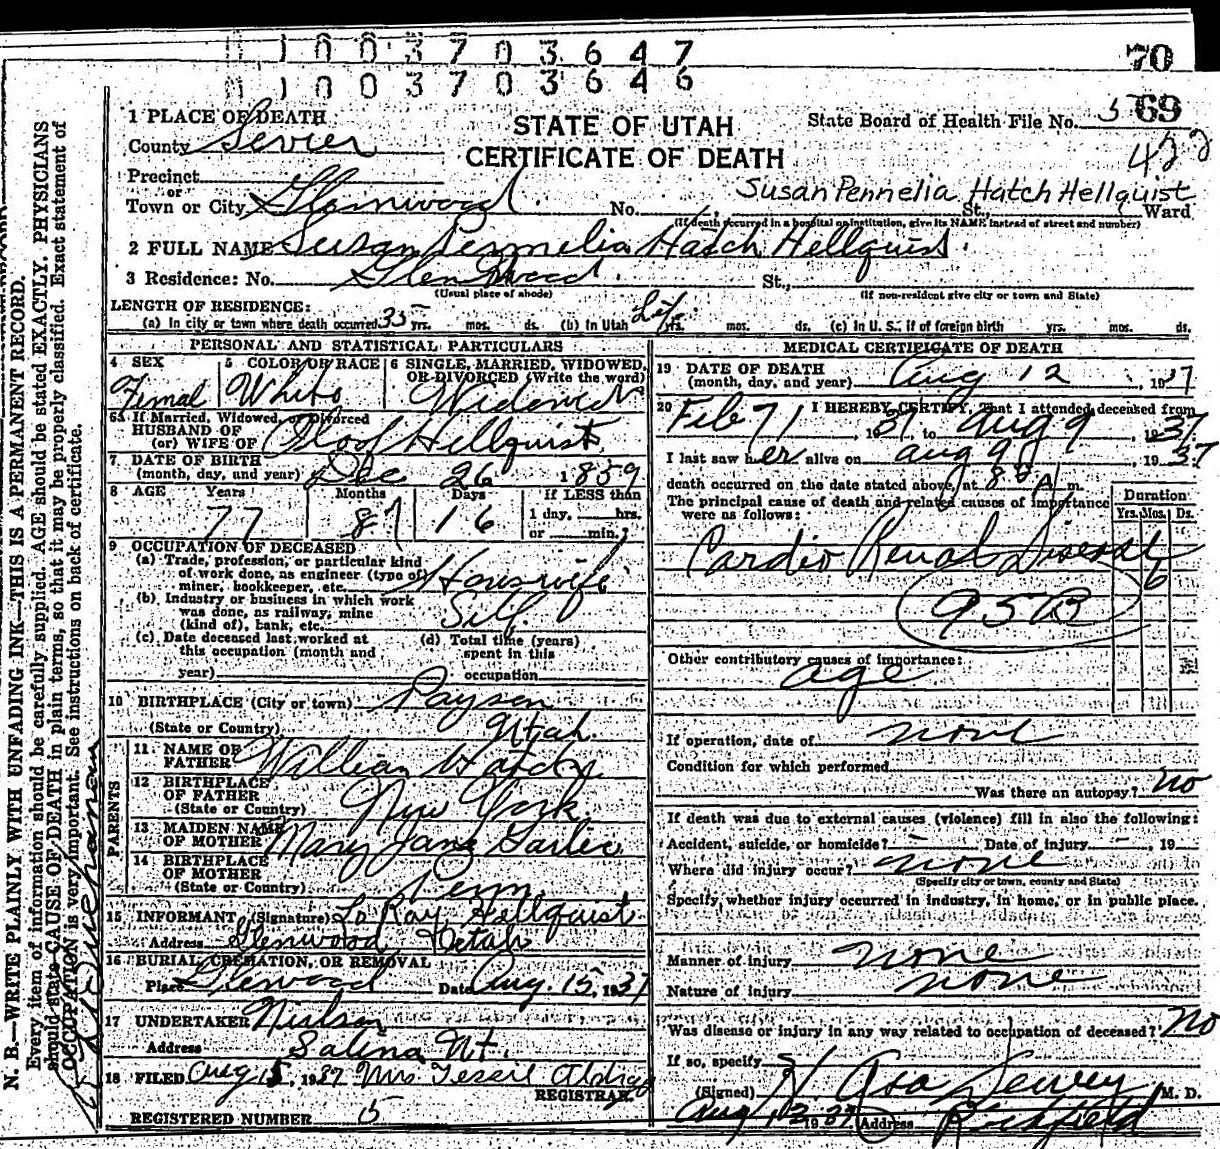 0 1 0 0 3 7 0 3 6 4 7
70
0 1 0 0 3 7 0 3 6 4 6
69
1 PLACE OF DEATH
County Sevier
STATE OF UTAH
CERTIFICATE OF DEATH
State Board of Health File No.
422
Precinct
or
Town or City Glenwood. No. St., Ward
Susan Pennelia Hatch Hellquist
(If death occurred in a hospital or institution, give its NAME instead of street and number)
2 FULL NAME Susan Permelia Hatch Hellquist.
3 Residence: No. Glenwood. St.,
(Usual place of abode) (If non-resident give city or town and State)
LENGTH OF RESIDENCE:
(a) In city or town where death occurred 35 yrs. mos. ds. (b) In Utah Life yrs. mos. ds. (c) In U. S., if of foreign birth yrs. mos. ds.
PERSONAL AND STATISTICAL PARTICULARS
4 SEX Femal
5 COLOR OR RACE White
6 SINGLE, MARRIED, WIDOWED, OR DIVORCED (Write the word) Widowed
6a If Married, Widowed, or Divorced
HUSBAND OF
(or) WIFE OF Oloof Hellquist
7 DATE OF BIRTH
(month, day, and year) Dec 26 1859
8 AGE Years Months Days If LESS than
77 7 16 1 day, hrs.
or min.
9 OCCUPATION OF DECEASED
(a) Trade, profession, or particular kind
of work done, as engineer (type of)
miner, bookkeeper, etc. Housewife
(b) Industry or business in which work
was done, as railway, mine
(kind of), bank, etc. Self.
(c) Date deceased last worked at
this occupation (month and
year)
(d) Total time (years)
spent in this
occupation
10 BIRTHPLACE (City or town) Payson
(State or Country) Utah.
PARENTS
11 NAME OF
FATHER William Hatch
12 BIRTHPLACE
OF FATHER
(State or Country) New York.
13 MAIDEN NAME
OF MOTHER Mary Jane Garlic
14 BIRTHPLACE
OF MOTHER
(State or Country) Penn.
15 INFORMANT (Signature) La Ray Hellquist
Address Glenwood Utah
16 BURIAL, CREMATION, OR REMOVAL
Place Glenwood Date Aug. 15, 1937
17 UNDERTAKER Nielson
Address Salina Ut.
18 FILED Aug 15, 1937 Mrs Tessie Oldroyd
REGISTRAR.
REGISTERED NUMBER 15
MEDICAL CERTIFICATE OF DEATH
19 DATE OF DEATH
(month, day, and year) Aug 12, 1937
20 I HEREBY CERTIFY, That I attended deceased from
Feb 71, 1937, to Aug 9, 1937
I last saw her alive on Aug 9, 1937
death occurred on the date stated above, at A. m.
The principal cause of death and related causes of importance
were as follows:
Duration
Yrs. Mos. Ds.
Cardio Renal Disease
6
95B
Other contributory causes of importance:
age
If operation, date of none
Condition for which performed
Was there an autopsy? no
If death was due to external causes (violence) fill in also the following:
Accident, suicide, or homicide? - Date of injury -, 19
Where did injury occur? none
(Specify city or town, county and State)
Specify whether injury occurred in industry, in home, or in public place.
Manner of injury none
Nature of injury none
Was disease or injury in any way related to occupation of deceased? No
If so, specify
(Signed) H. Asa Dewey M. D.
Aug 13 1937 Address Richfield
N. B.—WRITE PLAINLY WITH UNFADING INK—THIS IS A PERMANENT RECORD.
Every item of information should be carefully supplied. AGE should be stated EXACTLY. PHYSICIANS
should state CAUSE OF DEATH in plain terms, so that it may be properly classified. Exact statement of
OCCUPATION is very important. See instructions on back of certificate.